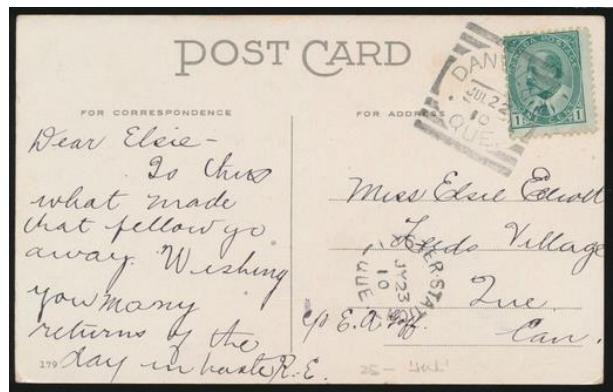 POST CARD
FOR CORRESPONDENCE
FOR ADDRESS
Dear Elsie -
Is this
what made
that fellow go
away. Wishing
you many
returns of the
day in haste R.E.
179
CANADA POSTAGE
1 1
JUL 22
10
QUE.
Miss Elsie Elliott
Leeds Village
Que.
c/o E. A. Goff. Can.
JY 23
10
QUE.